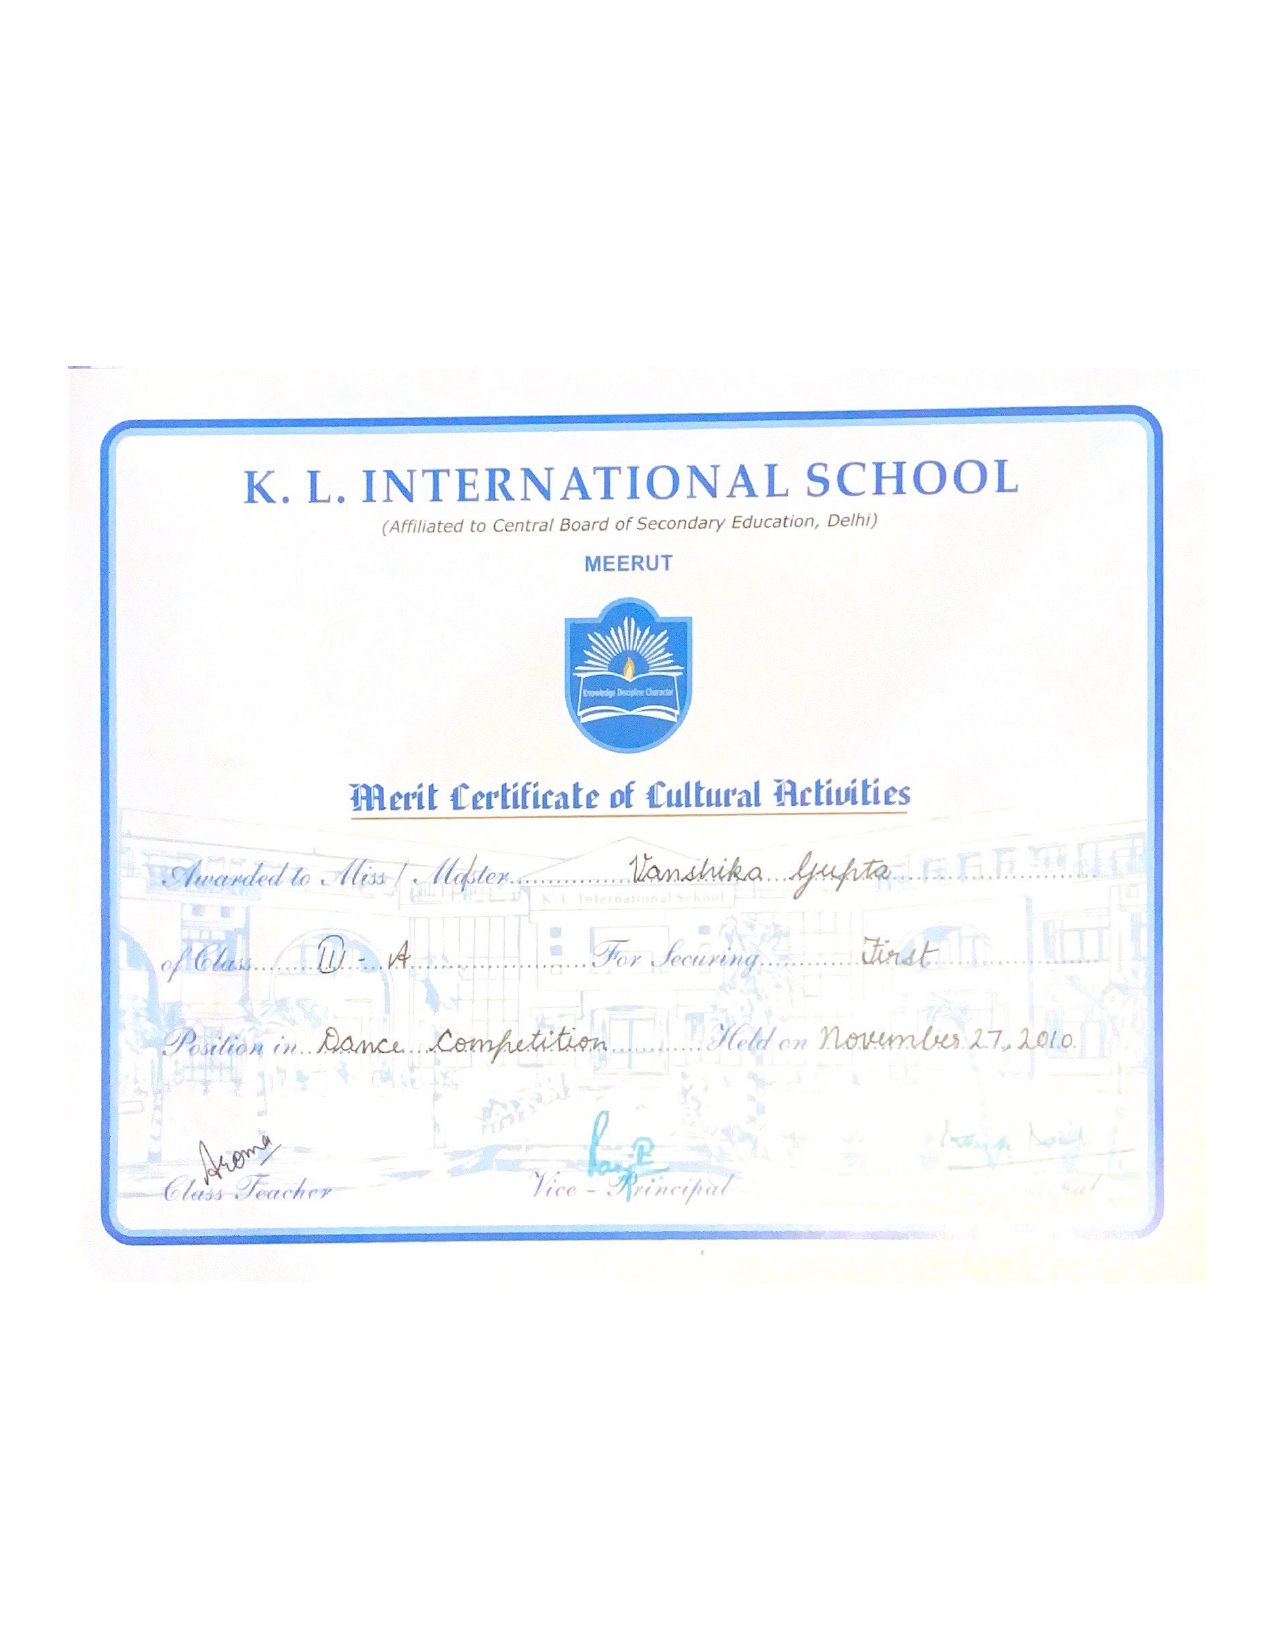 K. L. INTERNATIONAL SCHOOL
(Affiliated to Central Board of Secondary Education, Delhi)
MEERUT
Knowledge Discipline Character
Merit Certificate of Cultural Activities
Awarded to Miss / Master Vanshika Gupta
K. L. International School
of Class III - A For Securing First
Position in Dance Competition Held on November 27, 2010
Aroma
Class Teacher Vice - Principal